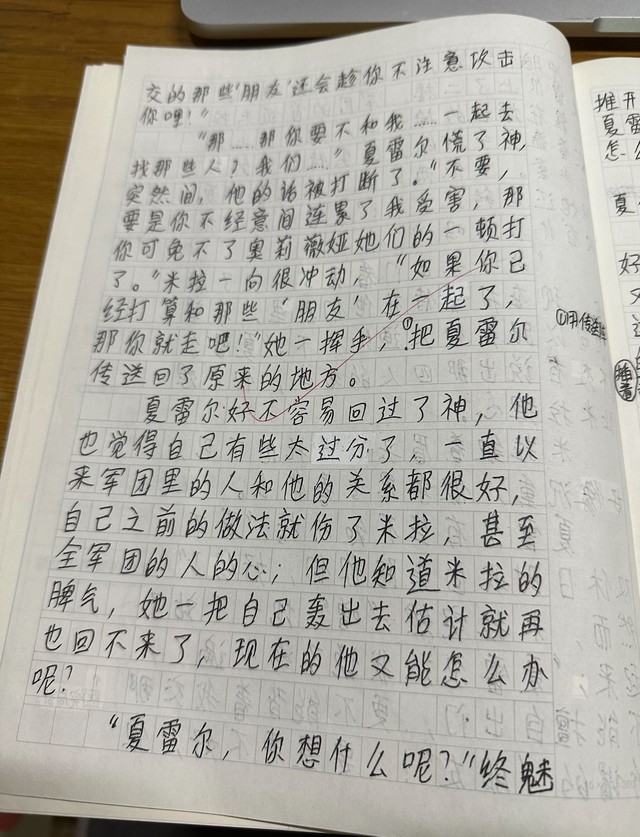 交的那些‘朋友’还会趁你不注意攻击
你哩！”
“那……那你要不和我……一起去
找那些人？我们……”夏雷尔慌了神，
突然间，他的话被打断了。“不要，
要是你不经意间连累了我受害，那
你可免不了奥莉薇娅她们的一顿打
了。”米拉一向很冲动，“如果你已
经打算和那些‘朋友’在一起了，
那你就走吧！”她一挥手，①把夏雷尔
传送回了原来的地方。
夏雷尔好不容易回过了神，他
也觉得自己有些太过分了，一直以
来军团里的人和他的关系都很好，
自己之前的做法就伤了米拉，甚至
全军团的人的心；但他知道米拉的
脾气，她一把自己轰出去估计就再
也回不来了，现在的他又能怎么办
呢？
“夏雷尔，你想什么呢？”终魅
①用传送
推开
夏雷
怎么
夏
好
又
睡着